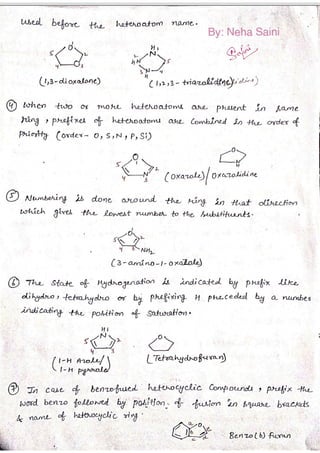 used before the heteroatom name.
By: Neha Saini
(1,3-dioxalone)
(1,2,3-triazolidine)
④ When two or more heteroatoms are present in same
ring, prefixes of heteroatoms are combined in the order of
priority (order- O, S, N, P, Si)
(Oxazole) / Oxazolidine
⑤ Numbering is done around the ring in that direction
which gives the lowest number to the substituents.
NH2
(3-amino-1-oxazole)
⑥ The state of Hydrogenation is indicated by prefix like
dihydro, tetrahydro or by prefixing H preceded by a number
indicating the position of saturation.
(1-H Azole/
1-H pyrrole)
(Tetrahydrofuran)
⑦ In case of benzofused heterocyclic Compounds, prefix the
word benzo followed by position of fusion in square brackets
& name of heterocyclic ring.
Benzo(b) furan